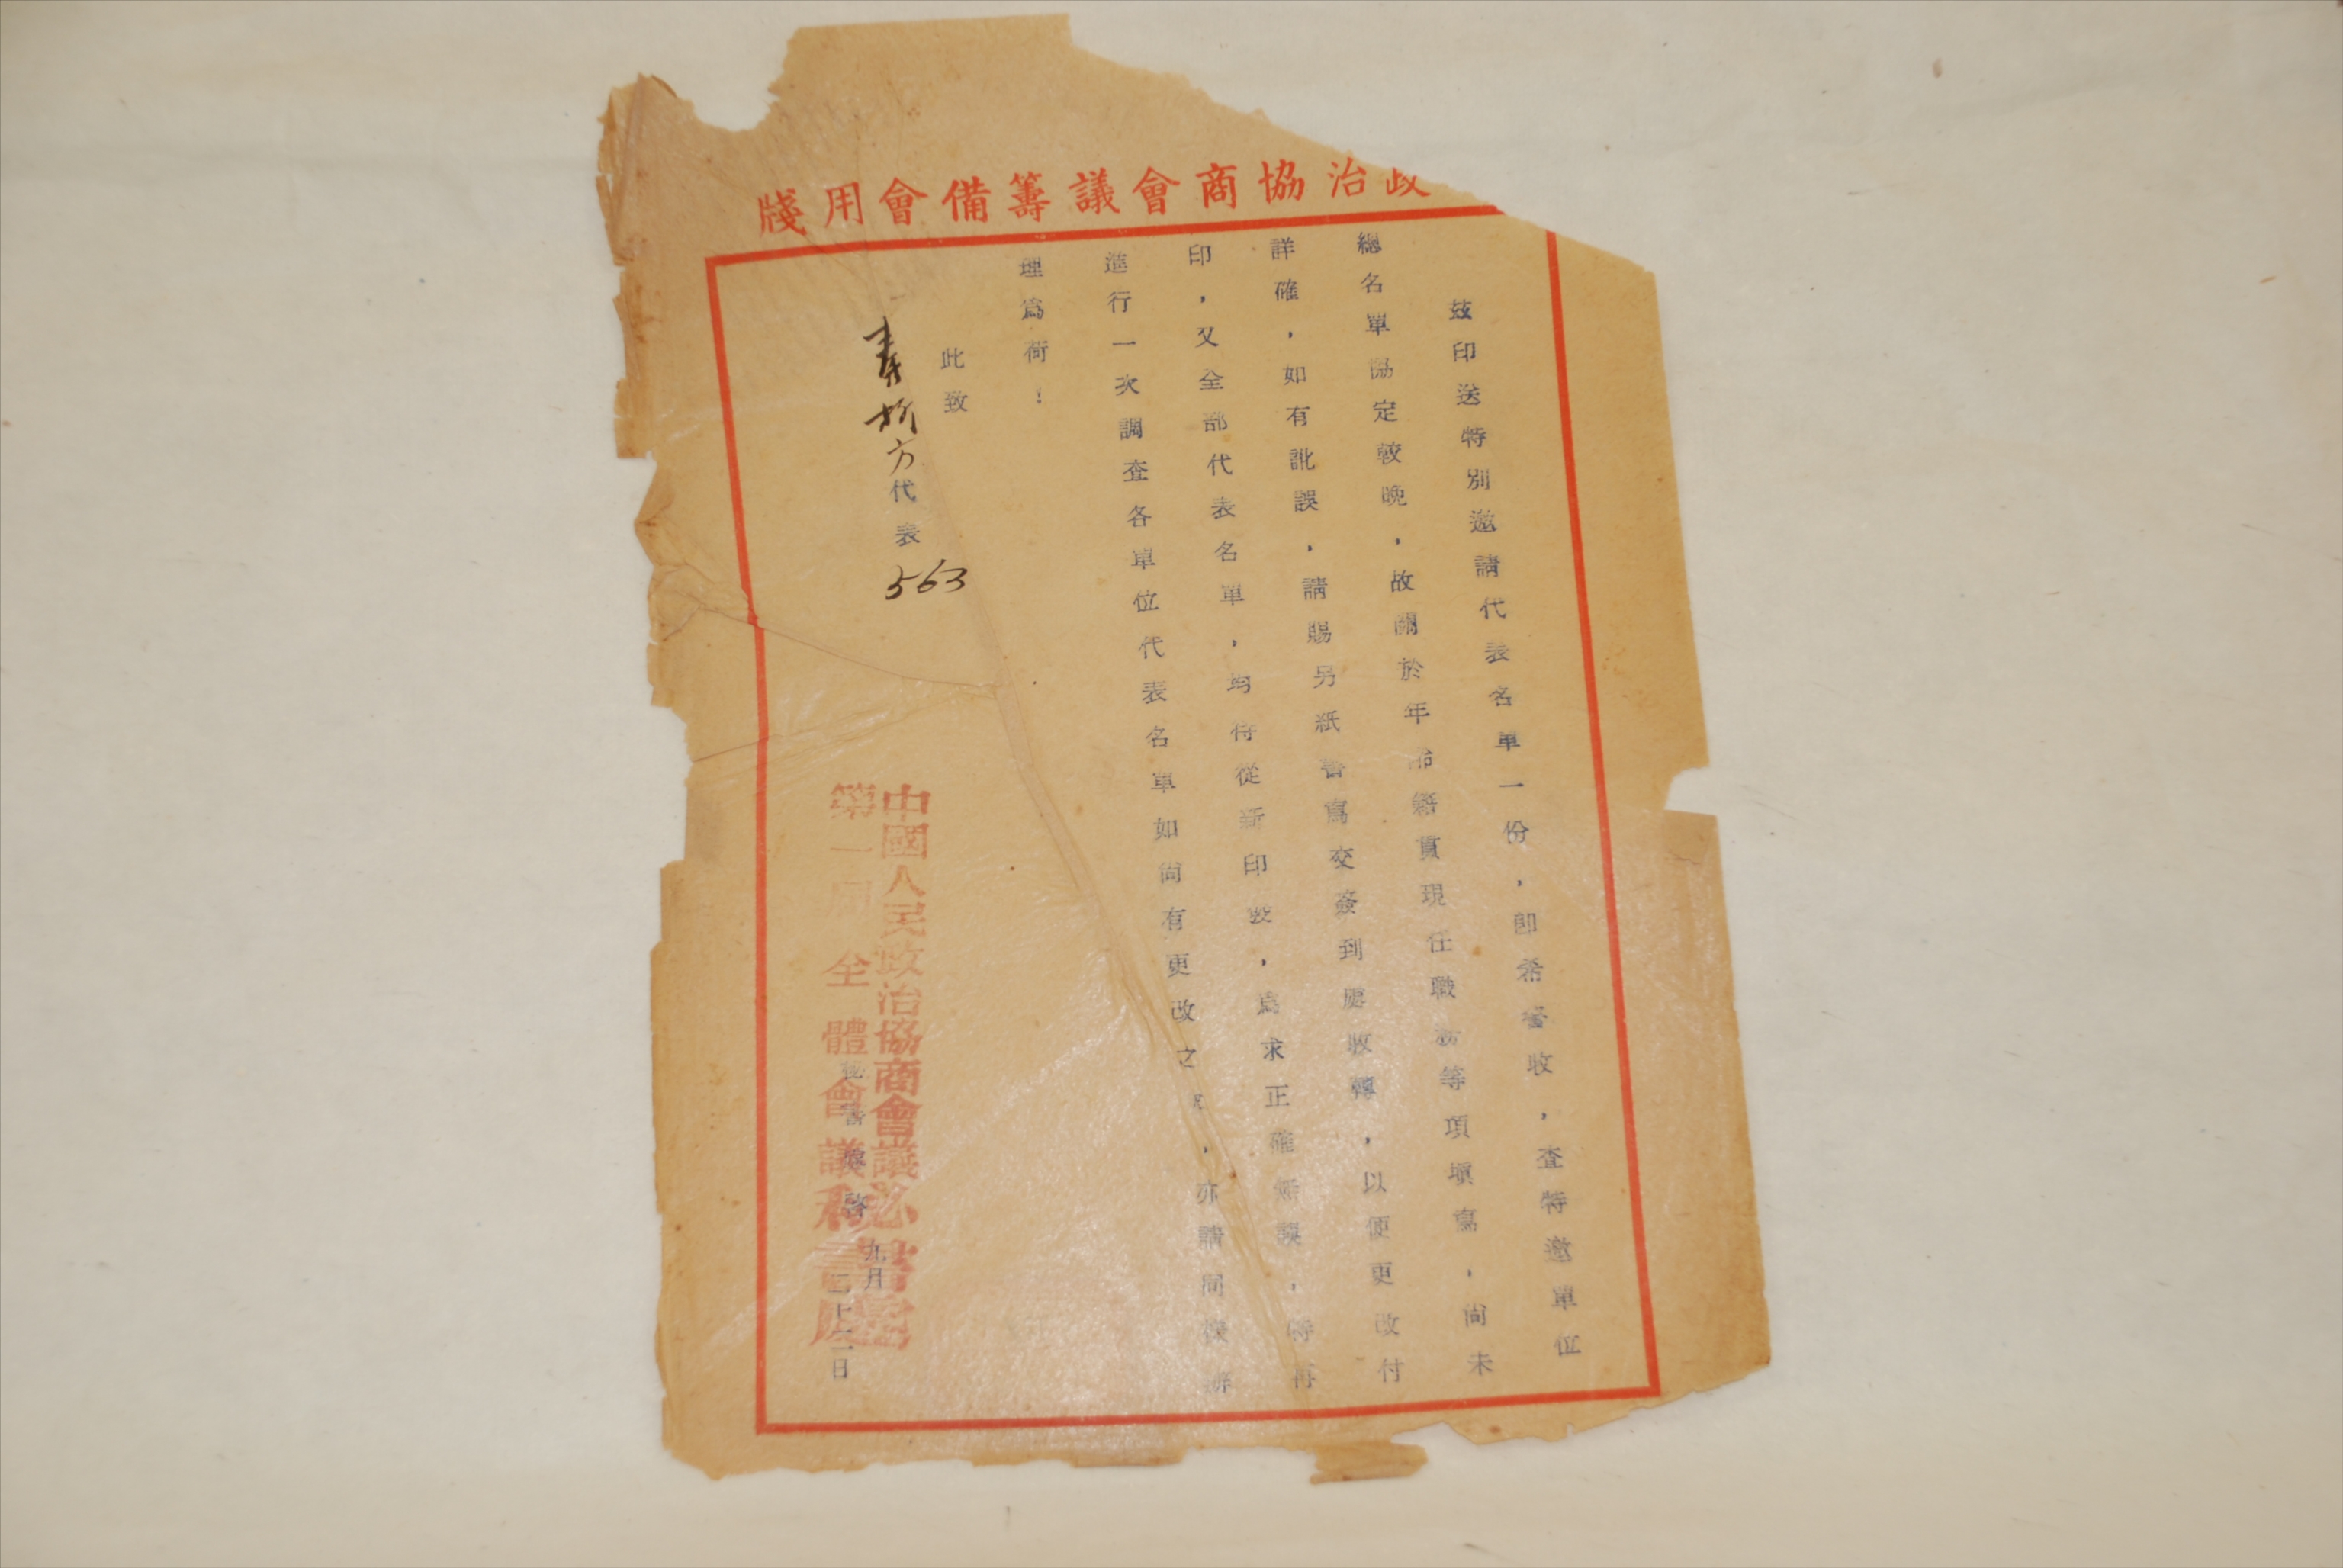 政治協商會議籌備會用牋
茲印送特別邀請代表名單一份，卽希詧收，查特邀單位
總名單協定較晚，故關於年 籍貫現任職務等項塡寫，尙未
詳確，如有訛誤，請賜另紙書寫交簽到處收轉，以便更改付
印，又全部代表名單，均待從新印發，爲求正確無誤，特再
進行一次調查各單位代表名單如尙有更改之 ，亦請同樣辦
理爲荷！
此致
方代表 563
中國人民政治協商會議秘書處
第一屆全體會議秘書處
秘書處啓
九月二十二日